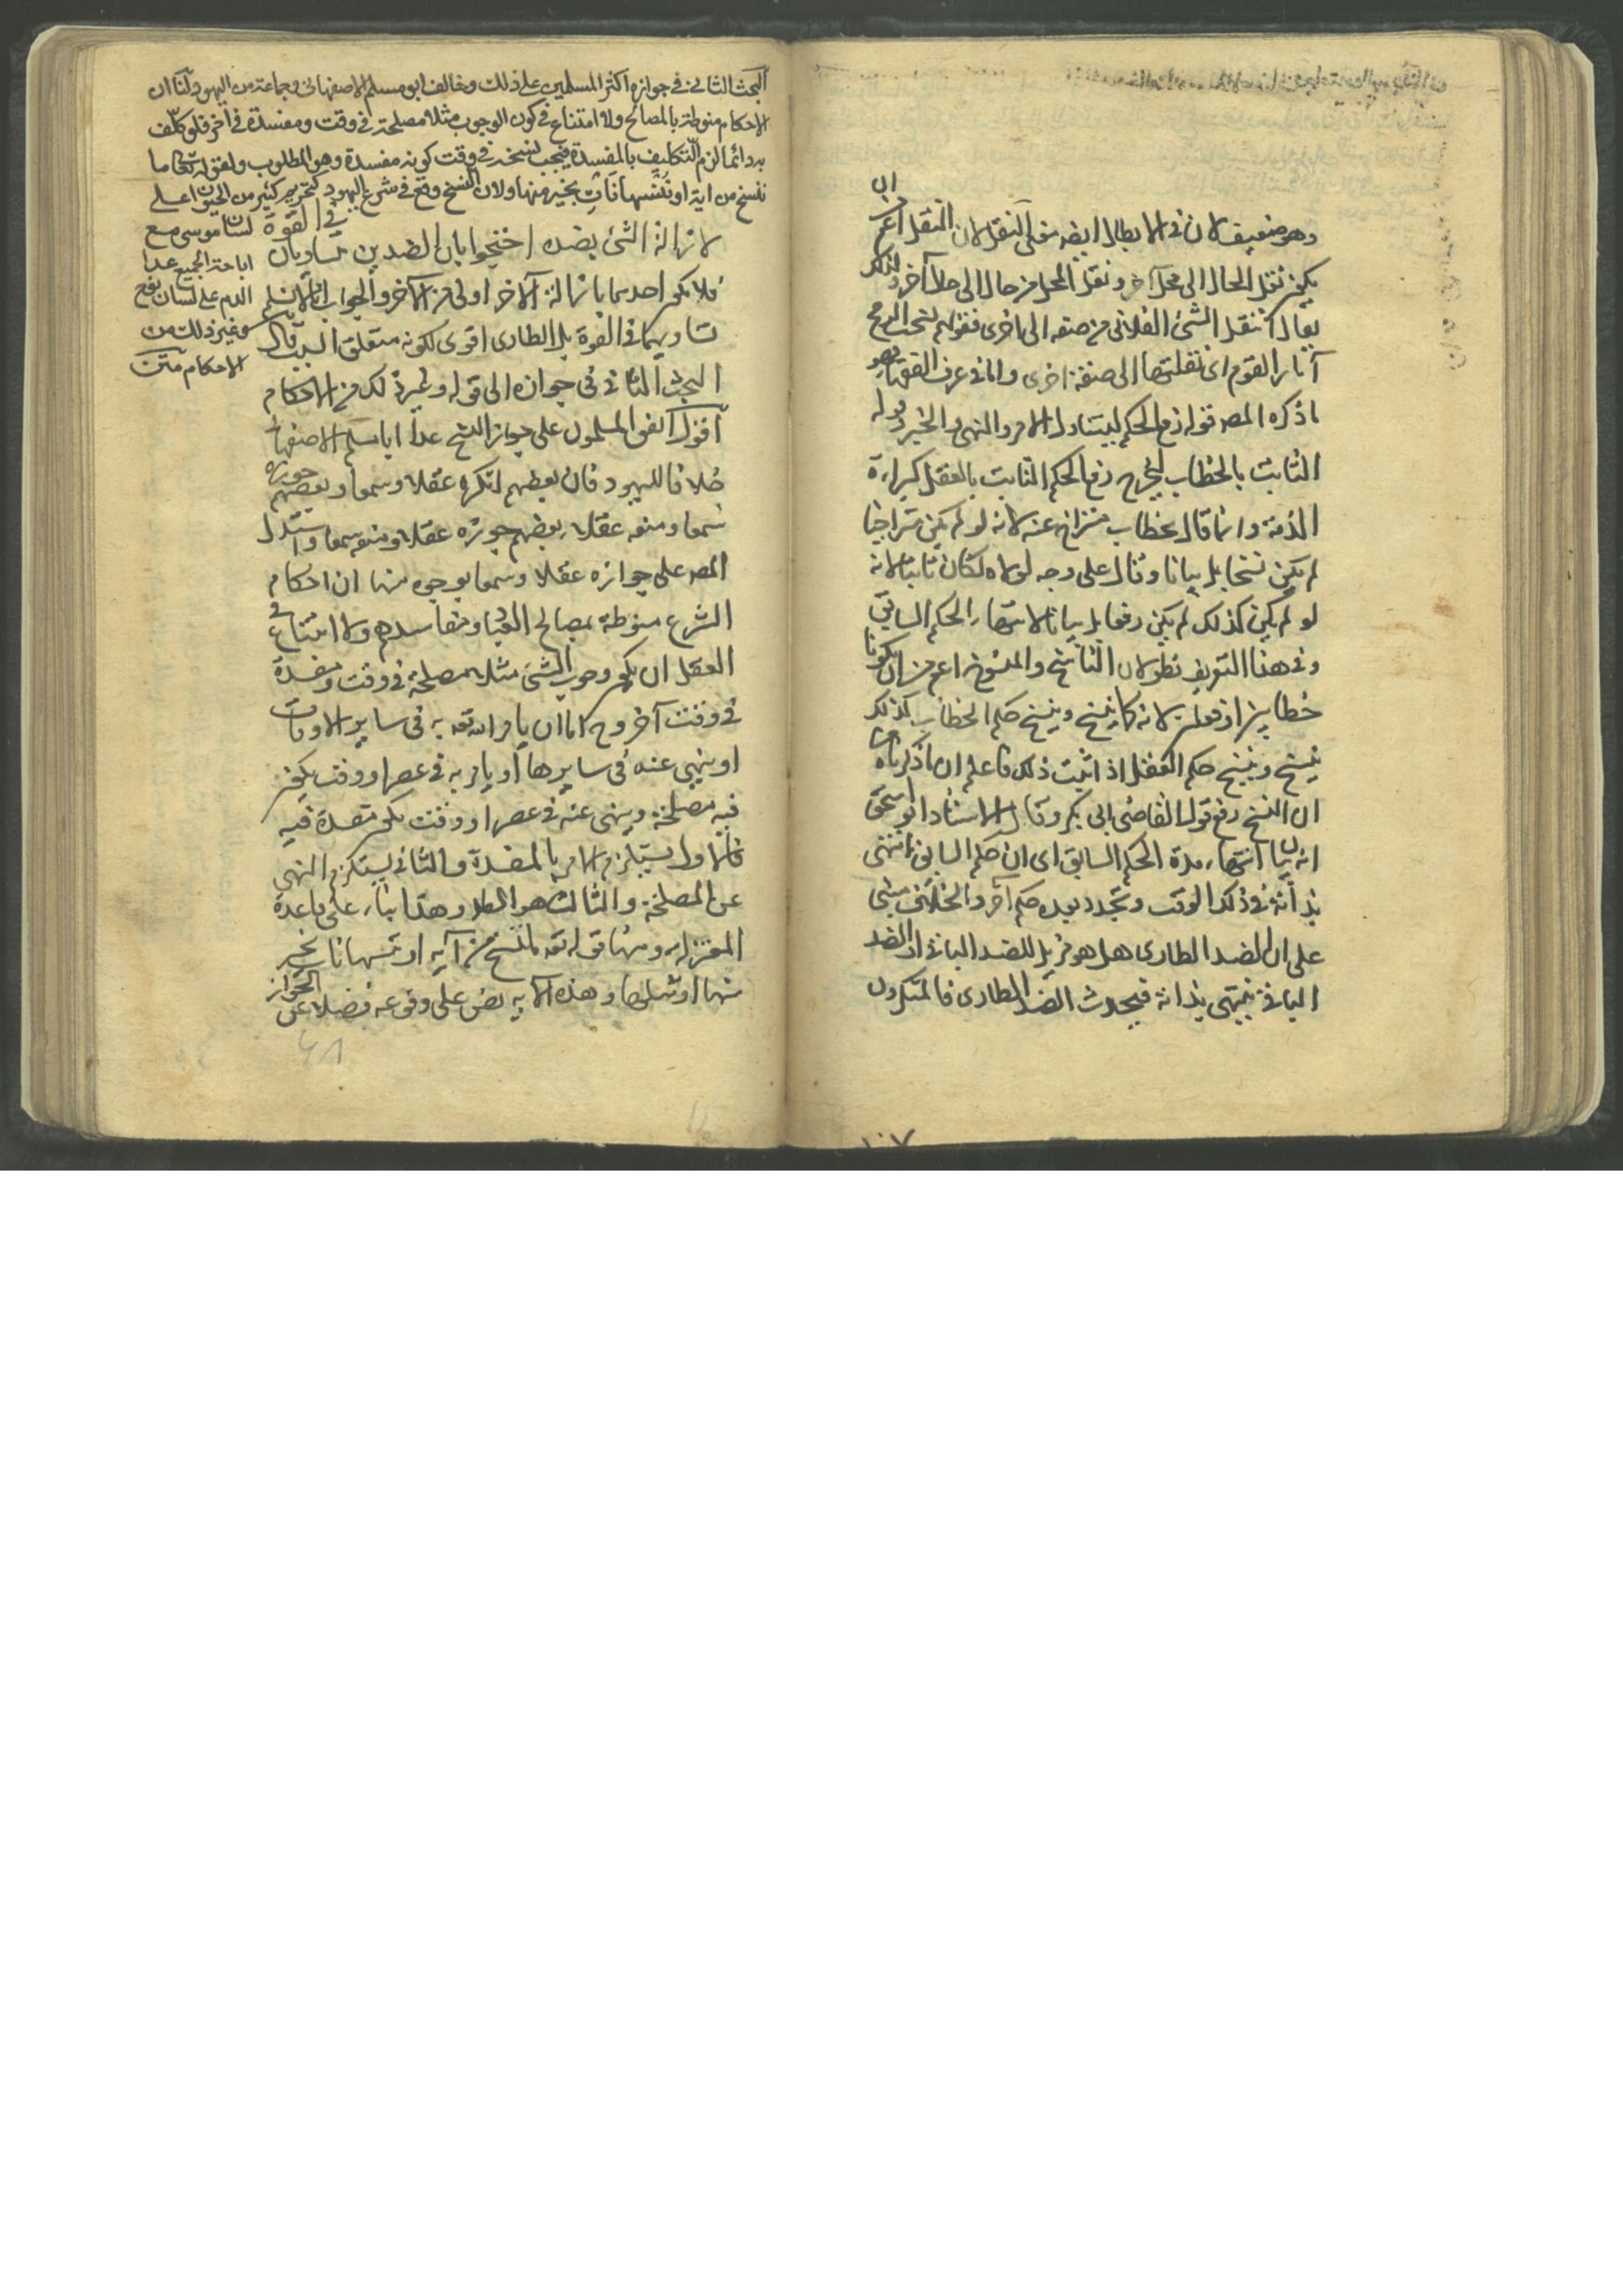 ان
وهو ضعيف لان في الابطال ايضا معنى النقل لان النقل اعم من
يكون نقل الحال الى محل آخر ونقل المحل من حال الى حال آخر ولذلك
يقال انتقل الشئ الفلاني من صفة الى اخرى فقولهم نسخت الريح
آثار القوم اى نقلتها الى صفة اخرى واما في عرف الفقهاء فهو
ما ذكره المص قوله رفع الحكم ليتناول الامر والنهى والخبر وقوله
الثابت بالخطاب ليخرج رفع الحكم الثابت بالعقل كبراءة
الذمة وانما قال بخطاب متراخ عنه لانه لو لم يكن متراخيا
لم يكن نسخا بل بيانا وقال على وجه لولاه لكان ثابتا لانه
لو لم يكن كذلك لم يكن رفعا بل بيانا لانتهاء الحكم السابق
وفي هذا التعريف نظر لان الناسخ والمنسوخ اعم من ان يكونا
خطابين او فعلين لانه كما ينسخ وينسخ حكم الخطاب كذلك
ينسخ وينسخ حكم الفعل اذا ثبت ذلك فاعلم ان ما ذكرناه من
ان النسخ رفع قول القاضى ابى بكر وقال الاستاد ابو اسحق
انه بيان انتهاء مدة الحكم السابق اى ان حكم السابق انتهى
بذاته في ذلك الوقت وتجدد بعده حكم آخر والخلاف مبنى
على ان الضد الطارى هل هو مزيل للضد الباقى او الضد
الباقى ينتهى بذاته فيحدث الضد الطارى فالمنكرون
البحث الثانى في جوازه اكثر المسلمين على ذلك وخالف ابو مسلم الاصفهانى وجماعة من اليهود لنا ان
الاحكام منوطة بالمصالح ولا امتناع في كون الوجوب مثلا مصلحة في وقت ومفسدة في آخر فلو كلف
به دائما لزم التكليف بالمفسدة فيجب نسخه في وقت كونه مفسدة وهو المطلوب ولقوله تعالى ما
ننسخ من اية او ننسها نأت بخير منها ولان النسخ وقع في شرع اليهود كتحريم كثير من الحيوان على
لسان موسى مع
اباحة الجميع عدا
الدم على لسان نوح
وغير ذلك من
الاحكام متن
لازالة الشئ بضده احتجوا بان الضدين متساويان في القوة
فلا يكون احدهما بازالة الآخر اولى من الآخر والجواب انا لا نسلم
تساويهما في القوة بل الطارى اقوى لكونه متعلق السبب قال
البحث الثانى في جوازه الى قوله وغير ذلك من الاحكام
اقول اتفق المسلمون على جواز النسخ عدا ابا مسلم الاصفهانى
خلافا لليهود فان بعضهم انكره عقلا وسمعا وبعضهم جوزه
سمعا ومنعه عقلا وبعضهم جوزه عقلا ومنعه سمعا واستدل
المص على جوازه عقلا وسمعا بوجوه منها ان احكام
الشرع منوطة بمصالح العباد ومفاسدهم ولا امتناع في
العقل ان يكون وجوب الشئ مثلا مصلحة في وقت ومفسدة
في وقت آخر وح اما ان يامر الله تعه به في ساير الاوقات
او ينهى عنه في سايرها او يامر به في عصر او وقت يكون
فيه مصلحة وينهى عنه في عصر او وقت يكون مفسدة فيه
فالاول يستلزم الامر بالمفسدة والثانى يستلزم النهى
عن المصلحة والثالث هو المط وهذا بناء على قاعدة
المعتزله ومنها قوله تعه ما ننسخ من آيه او ننسها نات بخير
منها او مثلها وهذه الآيه نص على وقوعه فضلا عن الجواز
١٠٧